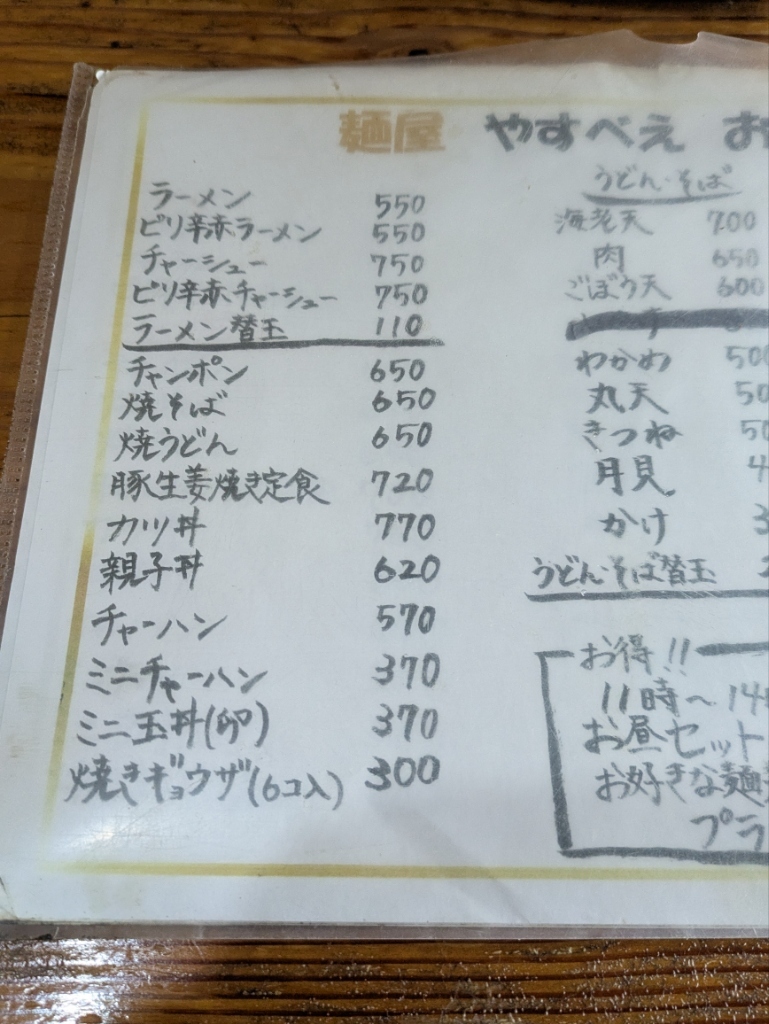 麺屋 やすべえ お
ラーメン 550
ピリ辛赤ラーメン 550
チャーシュー 750
ピリ辛赤チャーシュー 750
ラーメン替玉 110
チャンポン 650
焼そば 650
焼うどん 650
豚生姜焼き定食 720
カツ丼 770
親子丼 620
チャーハン 570
ミニチャーハン 370
ミニ玉丼(卵) 370
焼きギョウザ(6コ入) 300
うどん・そば
海老天 700
肉 650
ごぼう天 600
わかめ 500
丸天 50
きつね 50
月見 4
かけ 3
うどん・そば替玉 2
お得!!
11時～14
お昼セット
お好きな麺
プラ